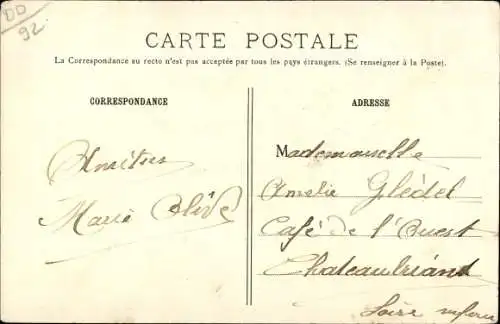 DD
92
CARTE POSTALE
La Correspondance au recto n'est pas acceptée par tous les pays étrangers. (Se renseigner à la Poste).
CORRESPONDANCE
Amitiés
Marie Olive
ADRESSE
Mademoiselle
Amelie Glédel
Café de l'Ouest
Chateaubriant
Loire